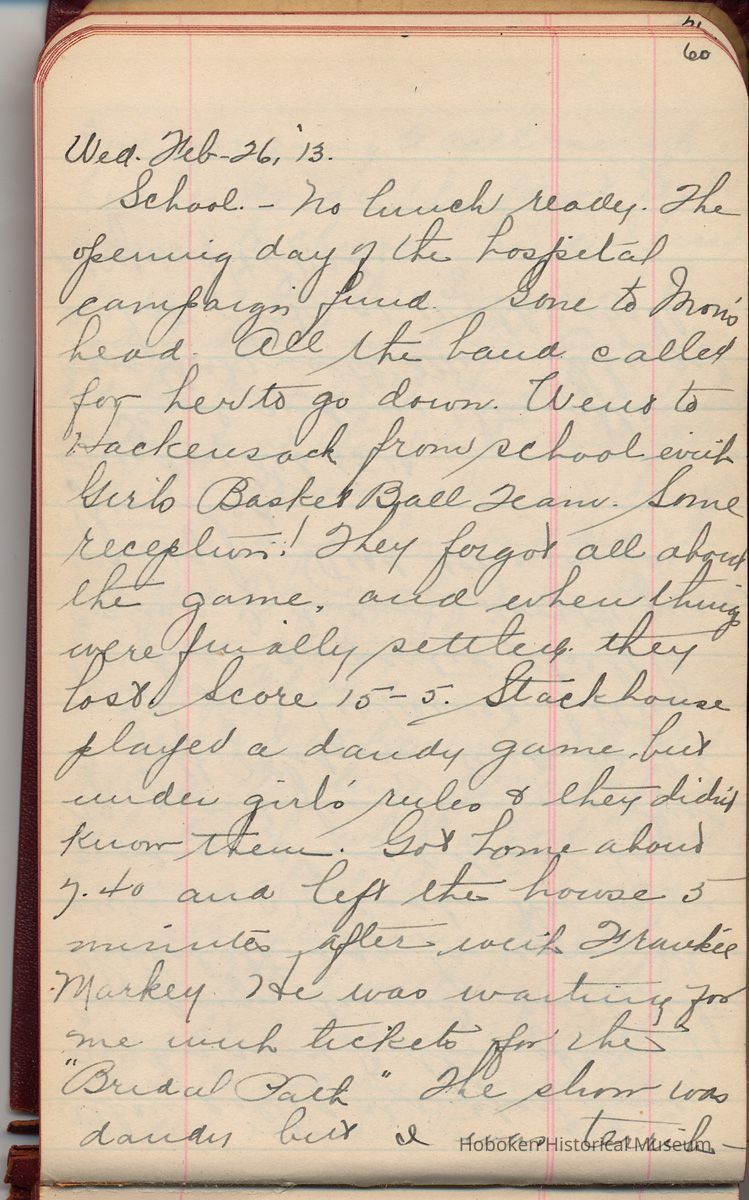 71
60
Wed. Feb-26, '13.
School. - No lunch ready. The
opening day of the hospital
campaign fund. Gone to Mom's
head. All the band called
for her to go down. Went to
Hackensack from school with
Girls Basket Ball Team. Some
reception! They forgot all about
the game, and when things
were finally settled they
lost. Score 15-5. Stackhouse
played a dandy game, but
under girls' rules & they didn't
know them. Got home about
7.40 and left the house 5
minutes after with Frankie
Markey. He was waiting for
me with tickets for the
"Bridal Path" The show was
dandy but I was terrib-
Hoboken Historical Museum